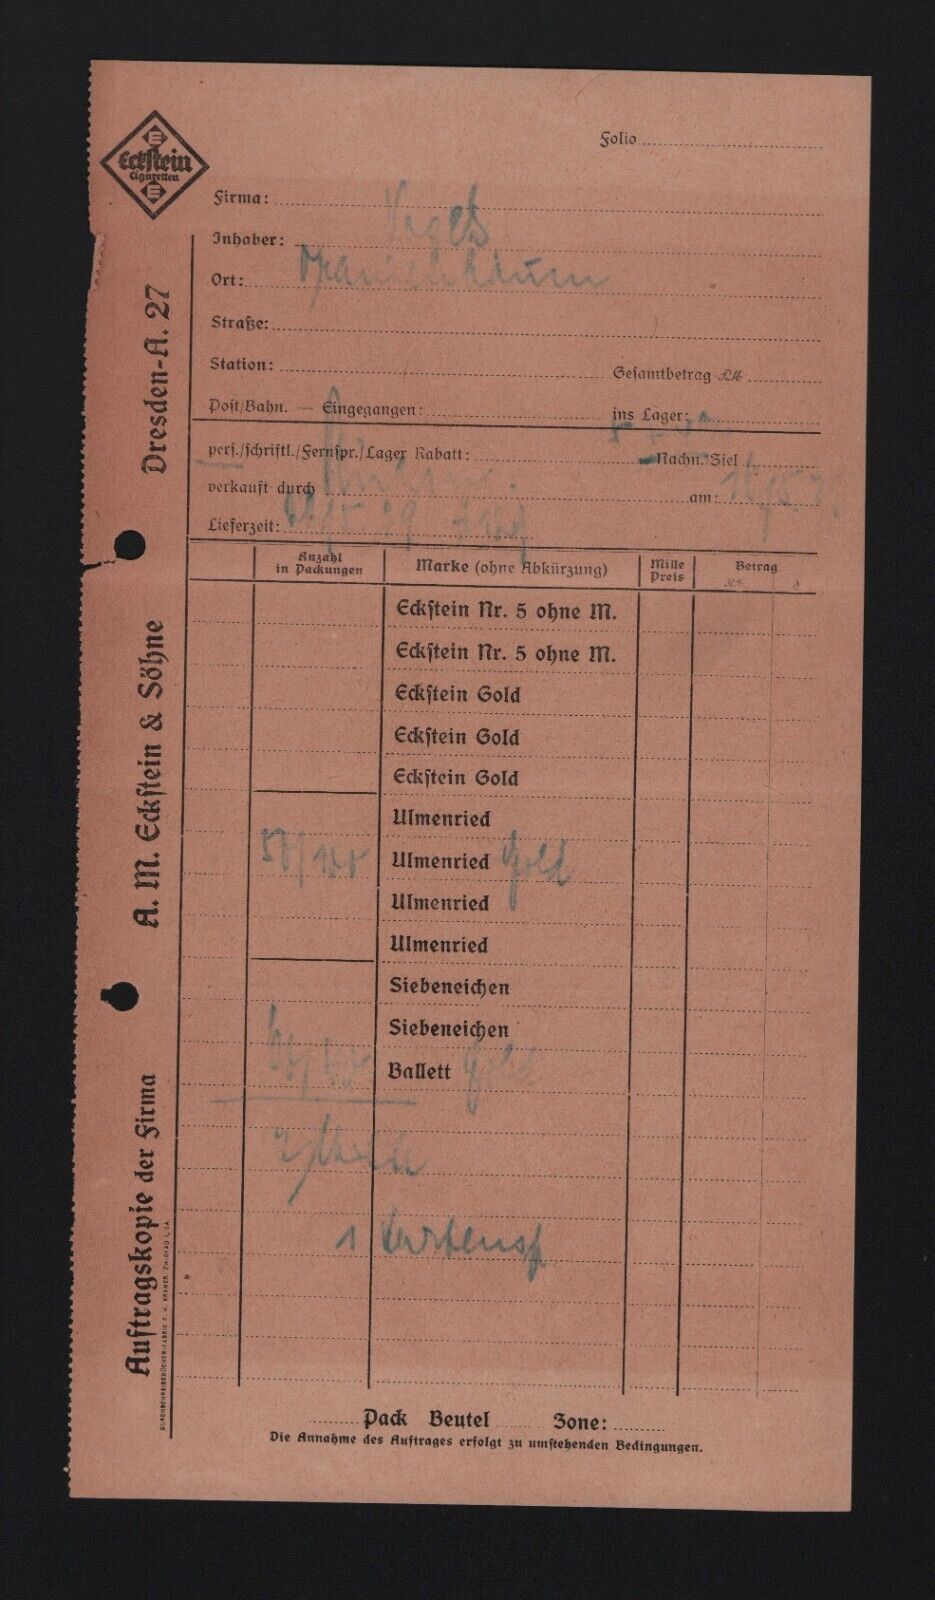 Eckstein
Cigaretten
Folio
Firma:
Inhaber:
Ort: Oranienbaum
Straße:
Station: Gesamtbetrag RM
Post/Bahn. — Eingegangen: ins Lager:
pers./schriftl./Fernspr./Lager Rabatt: Nachn. Ziel
verkauft durch am:
Lieferzeit:
Anzahl in Packungen Marke (ohne Abkürzung) Mille Preis Betrag
Eckstein Nr. 5 ohne M.
Eckstein Nr. 5 ohne M.
Eckstein Gold
Eckstein Gold
Eckstein Gold
Ulmenried
Ulmenried Gold
Ulmenried
Ulmenried
Siebeneichen
Siebeneichen
Ballett Gold
1 Kartensp
Pack Beutel Zone:
Die Annahme des Auftrages erfolgt zu umstehenden Bedingungen.
Auftragskopie der Firma A. M. Eckstein & Söhne Dresden-A. 27